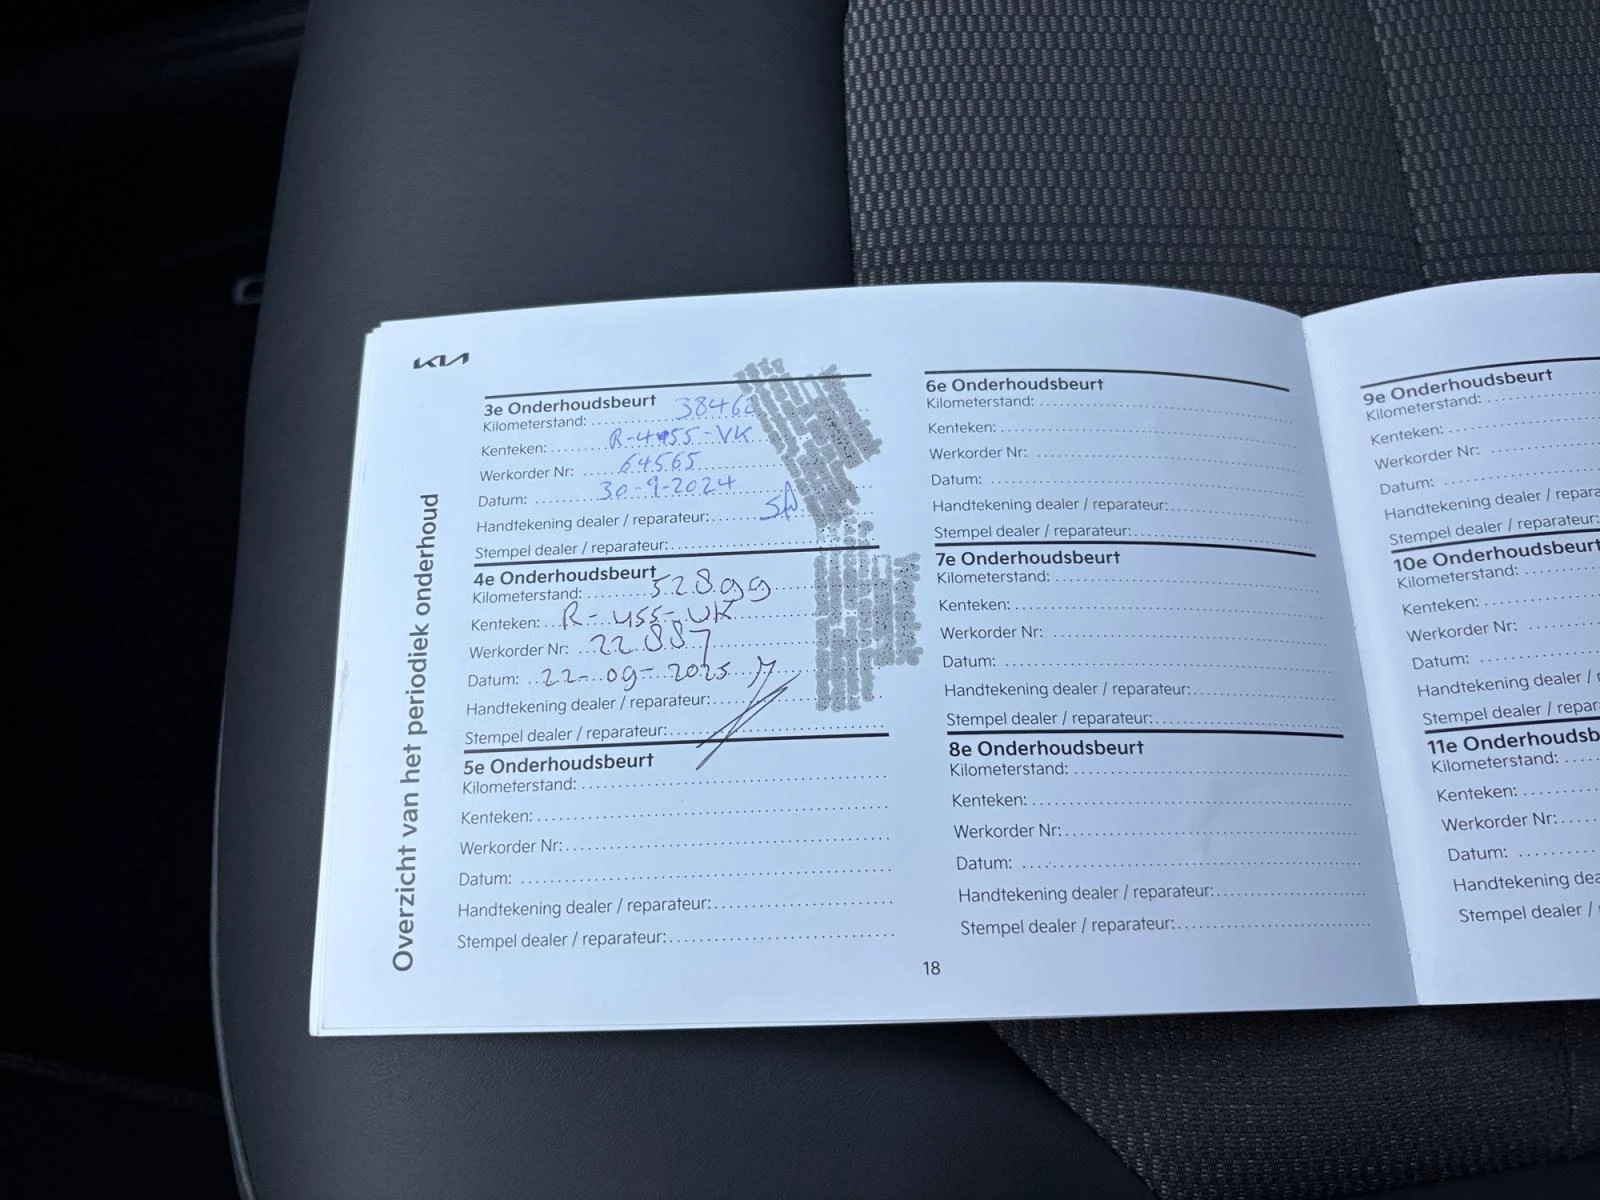 KIA
Overzicht van het periodiek onderhoud
3e Onderhoudsbeurt
Kilometerstand: 38462
Kenteken: R-455-VK
Werkorder Nr: 64565
Datum: 30-9-2024
Handtekening dealer / reparateur:
Stempel dealer / reparateur:
4e Onderhoudsbeurt
Kilometerstand: 52899
Kenteken: R-455-VK
Werkorder Nr: 22887
Datum: 22-09-2025
Handtekening dealer / reparateur:
Stempel dealer / reparateur:
5e Onderhoudsbeurt
Kilometerstand:
Kenteken:
Werkorder Nr:
Datum:
Handtekening dealer / reparateur:
Stempel dealer / reparateur:
6e Onderhoudsbeurt
Kilometerstand:
Kenteken:
Werkorder Nr:
Datum:
Handtekening dealer / reparateur:
Stempel dealer / reparateur:
7e Onderhoudsbeurt
Kilometerstand:
Kenteken:
Werkorder Nr:
Datum:
Handtekening dealer / reparateur:
Stempel dealer / reparateur:
8e Onderhoudsbeurt
Kilometerstand:
Kenteken:
Werkorder Nr:
Datum:
Handtekening dealer / reparateur:
Stempel dealer / reparateur:
18
9e Onderhoudsbeurt
Kilometerstand:
Kenteken:
Werkorder Nr:
Datum:
Handtekening dealer / repara
Stempel dealer / reparateur:
10e Onderhoudsbeurt
Kilometerstand:
Kenteken:
Werkorder Nr:
Datum:
Handtekening dealer /
Stempel dealer / repar
11e Onderhoudsb
Kilometerstand:
Kenteken:
Werkorder Nr:
Datum:
Handtekening dea
Stempel dealer /